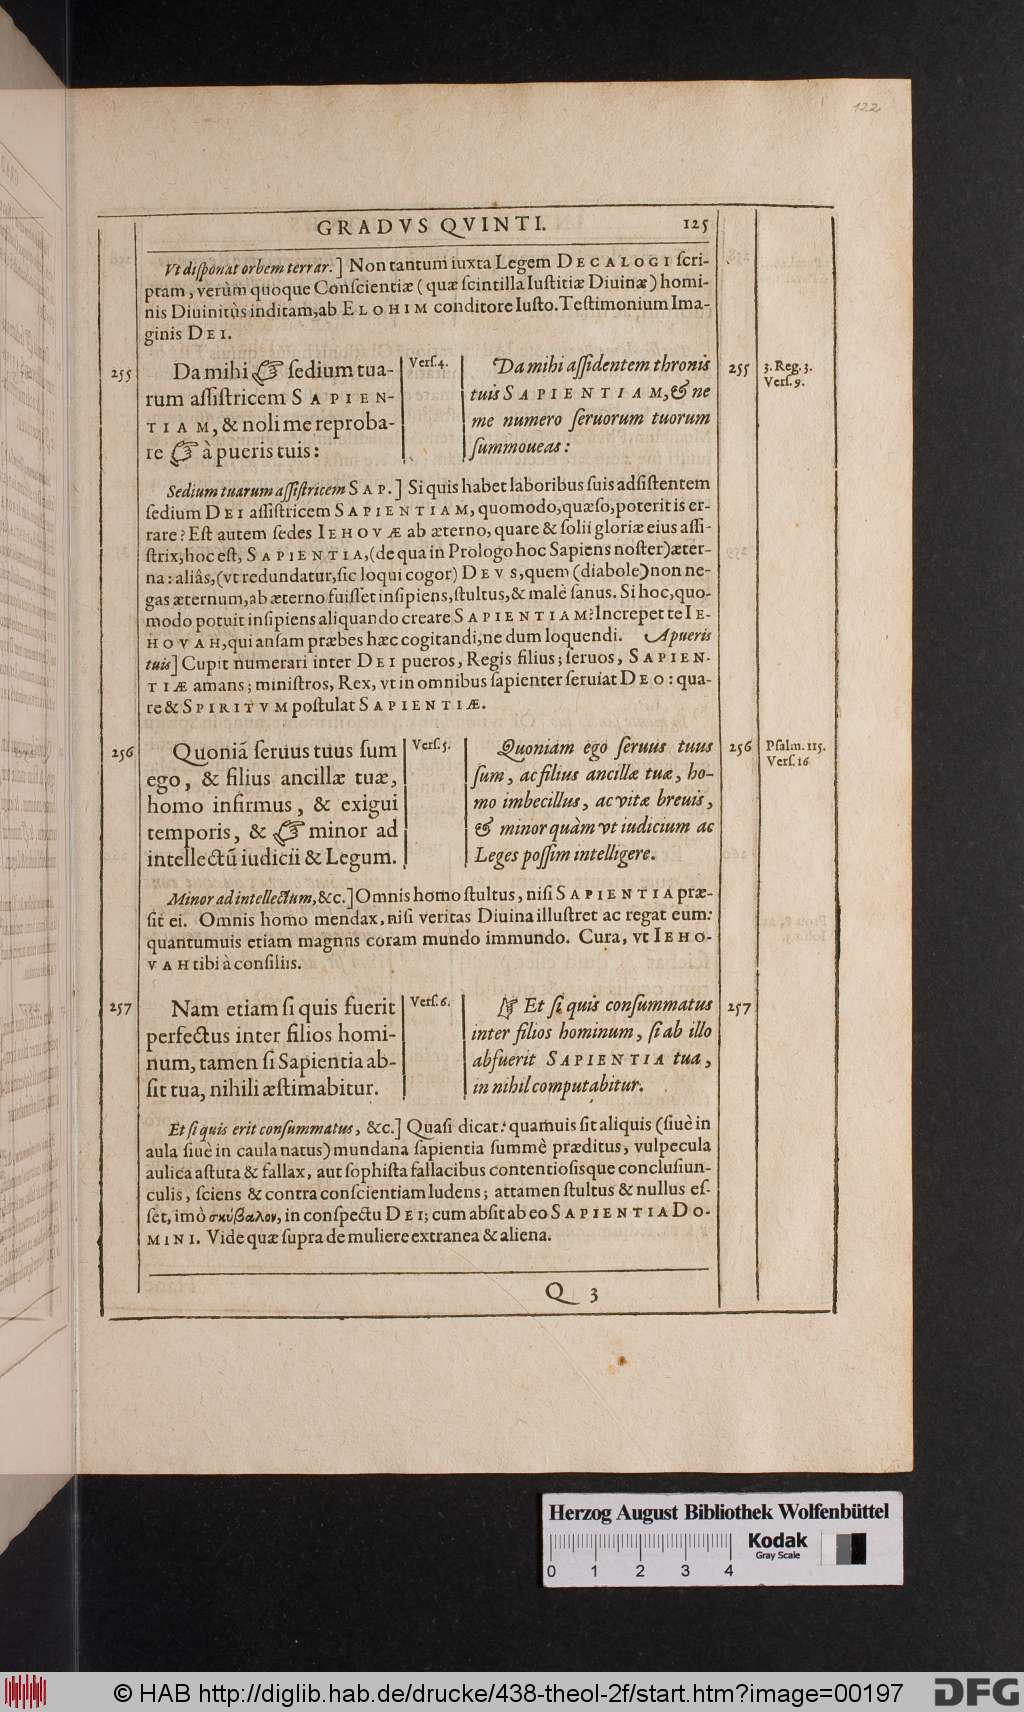 122
GRADVS QVINTI. 125
Vt disponat orbem terrar.] Non tantum iuxta Legem DECALOGI scri-
ptam, verùm quoque Conscientiæ (quæ scintilla Iustitiæ Diuinæ) homi-
nis Diuinitùs inditam, ab ELOHIM conditore Iusto. Testimonium Ima-
ginis DEI.
255 Da mihi ☞ sedium tua-
rum assistricem SAPIEN-
TIAM, & noli me reproba-
re ☞ à pueris tuis:
Vers. 4.
Da mihi assidentem thronis
tuis SAPIENTIAM, & ne
me numero seruorum tuorum
summoueas:
255 3. Reg. 3.
Vers. 9.
Sedium tuarum assistricem SAP.] Si quis habet laboribus suis adsistentem
sedium DEI assistricem SAPIENTIAM, quomodo, quæso, poterit is er-
rare? Est autem sedes IEHOVÆ ab æterno, quare & solii gloriæ eius assi-
strix, hoc est, SAPIENTIA, (de qua in Prologo hoc Sapiens noster) æter-
na: aliâs, (vt redundatur, sic loqui cogor) DEVS, quem (diabole) non ne-
gas æternum, ab æterno fuisset insipiens, stultus, & malè sanus. Si hoc, quo-
modo potuit insipiens aliquando creare SAPIENTIAM? Increpet te IE-
HOVAH, qui ansam præbes hæc cogitandi, ne dum loquendi. A pueris
tuis] Cupit numerari inter DEI pueros, Regis filius; seruos, SAPIEN-
TIÆ amans; ministros, Rex, vt in omnibus sapienter seruiat DEO: qua-
re & SPIRITVM postulat SAPIENTIÆ.
256 Quoniã seruus tuus sum
ego, & filius ancillæ tuæ,
homo infirmus, & exigui
temporis, & ☞ minor ad
intellectũ iudicii & Legum.
Vers. 5.
Quoniam ego seruus tuus
sum, ac filius ancillæ tuæ, ho-
mo imbecillus, ac vitæ breuis,
& minor quàm vt iudicium ac
Leges possim intelligere.
256 Psalm. 115.
Vers. 16
Minor ad intellectum, &c.] Omnis homo stultus, nisi SAPIENTIA præ-
sit ei. Omnis homo mendax, nisi veritas Diuina illustret ac regat eum:
quantumuis etiam magnus coram mundo immundo. Cura, vt IEHO-
VAH tibi à consiliis.
257 Nam etiam si quis fuerit
perfectus inter filios homi-
num, tamen si Sapientia ab-
sit tua, nihili æstimabitur.
Vers. 6.
☞ Et si quis consummatus
inter filios hominum, si ab illo
abfuerit SAPIENTIA tua,
in nihil computabitur.
257
Et si quis erit consummatus, &c.] Quasi dicat: quamuis sit aliquis (siuè in
aula siuè in caula natus) mundana sapientia summè præditus, vulpecula
aulica astuta & fallax, aut sophista fallacibus contentiosisque conclusiun-
culis, sciens & contra conscientiam ludens; attamen stultus & nullus es-
set, imò σκύβαλον, in conspectu DEI; cum absit ab eo SAPIENTIA DO-
MINI. Vide quæ supra de muliere extranea & aliena.
Q 3
Herzog August Bibliothek Wolfenbüttel
Kodak
Gray Scale
0 1 2 3 4
© HAB http://diglib.hab.de/drucke/438-theol-2f/start.htm?image=00197
DFG